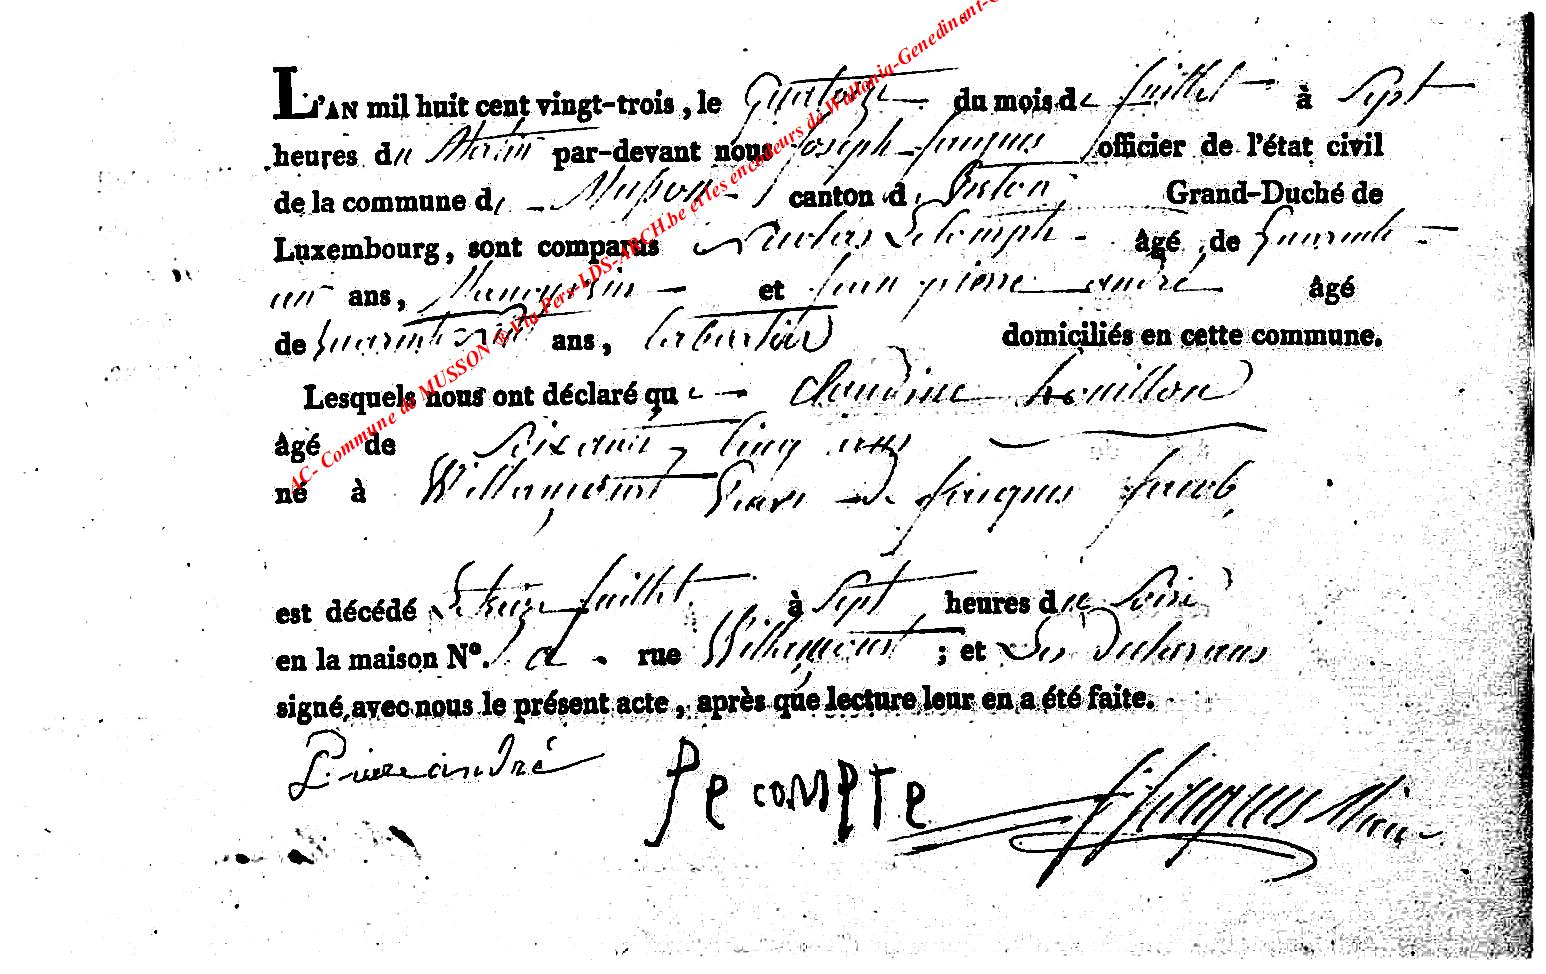 L'AN mil huit cent vingt-trois, le quatorze du mois de juillet à sept
heures du matin par-devant nous joseph jaques officier de l'état civil
de la commune de Musson canton de Virton Grand-Duché de
Luxembourg, sont comparus Nicolas Lecompte âgé de quarante
un ans, et jean pierre andré âgé
de quarante ans, cabartier domiciliés en cette commune.
Lesquels nous ont déclaré que Claudine houillon
âgé de soixante cinq ans
né à Willancourt de jaques jacob
est décédé le treize juillet à sept heures du soir
en la maison N°. rue Willancourt ; et les declarans
signé avec nous le présent acte, après que lecture leur en a été faite.
Pierre andré Le compte J. Jaques
AC- Commune de MUSSON ® Via Pers-LDS-ARCH.be et les encodeurs de Wallonia-Genedinant-